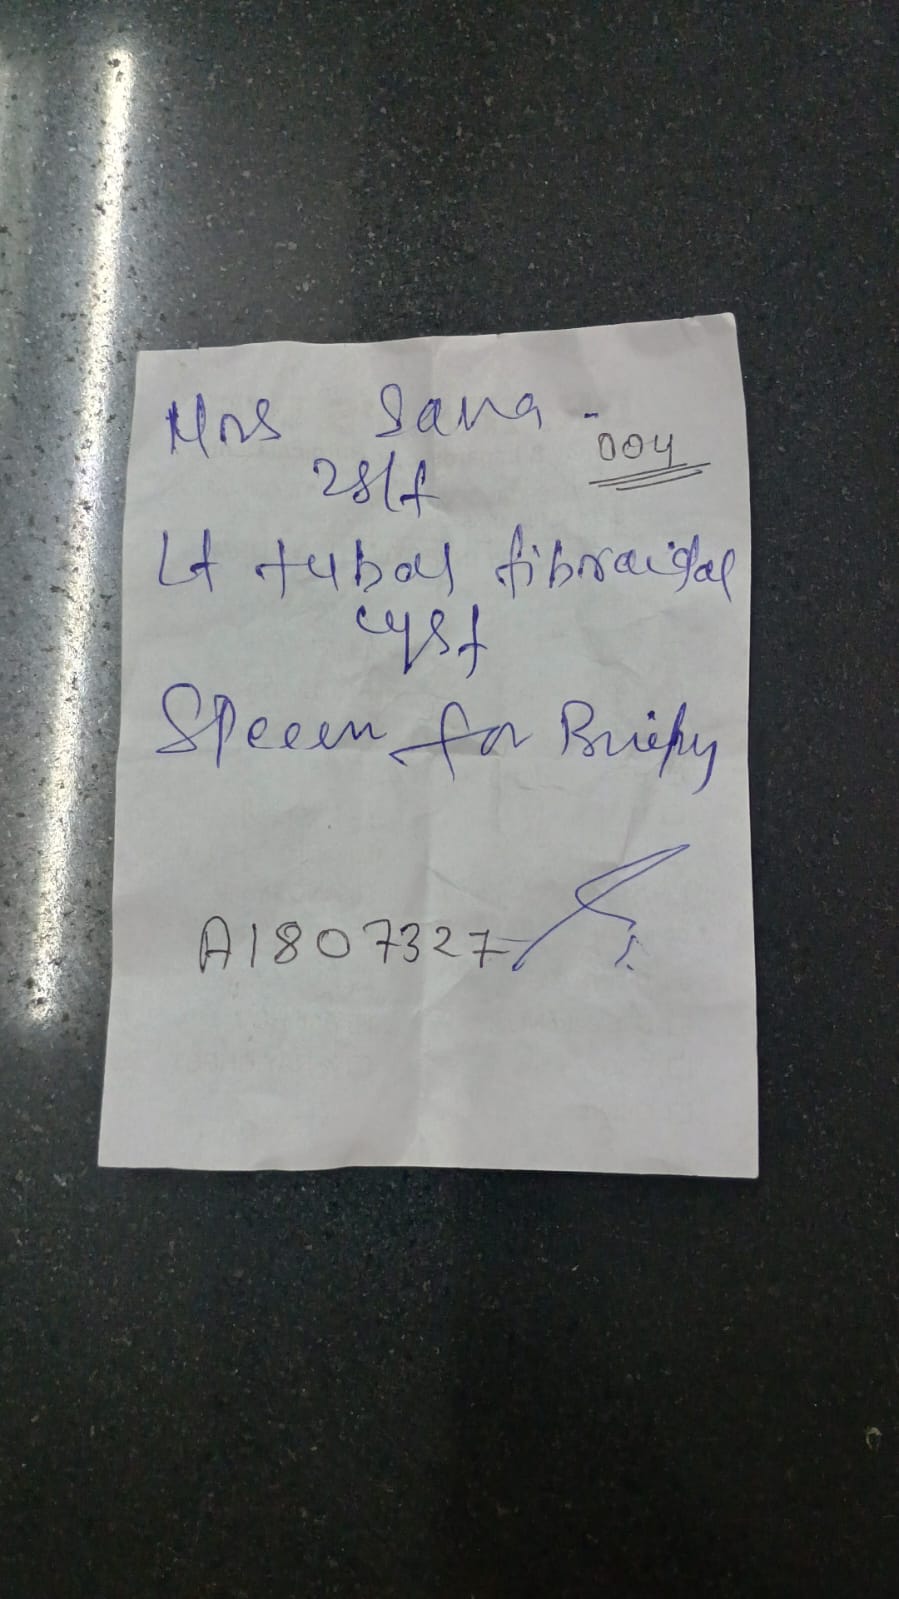 Mrs Sana -
004
28/f
Lt tubal fibroidal
cyst
Specen for Briepsy
A1807327